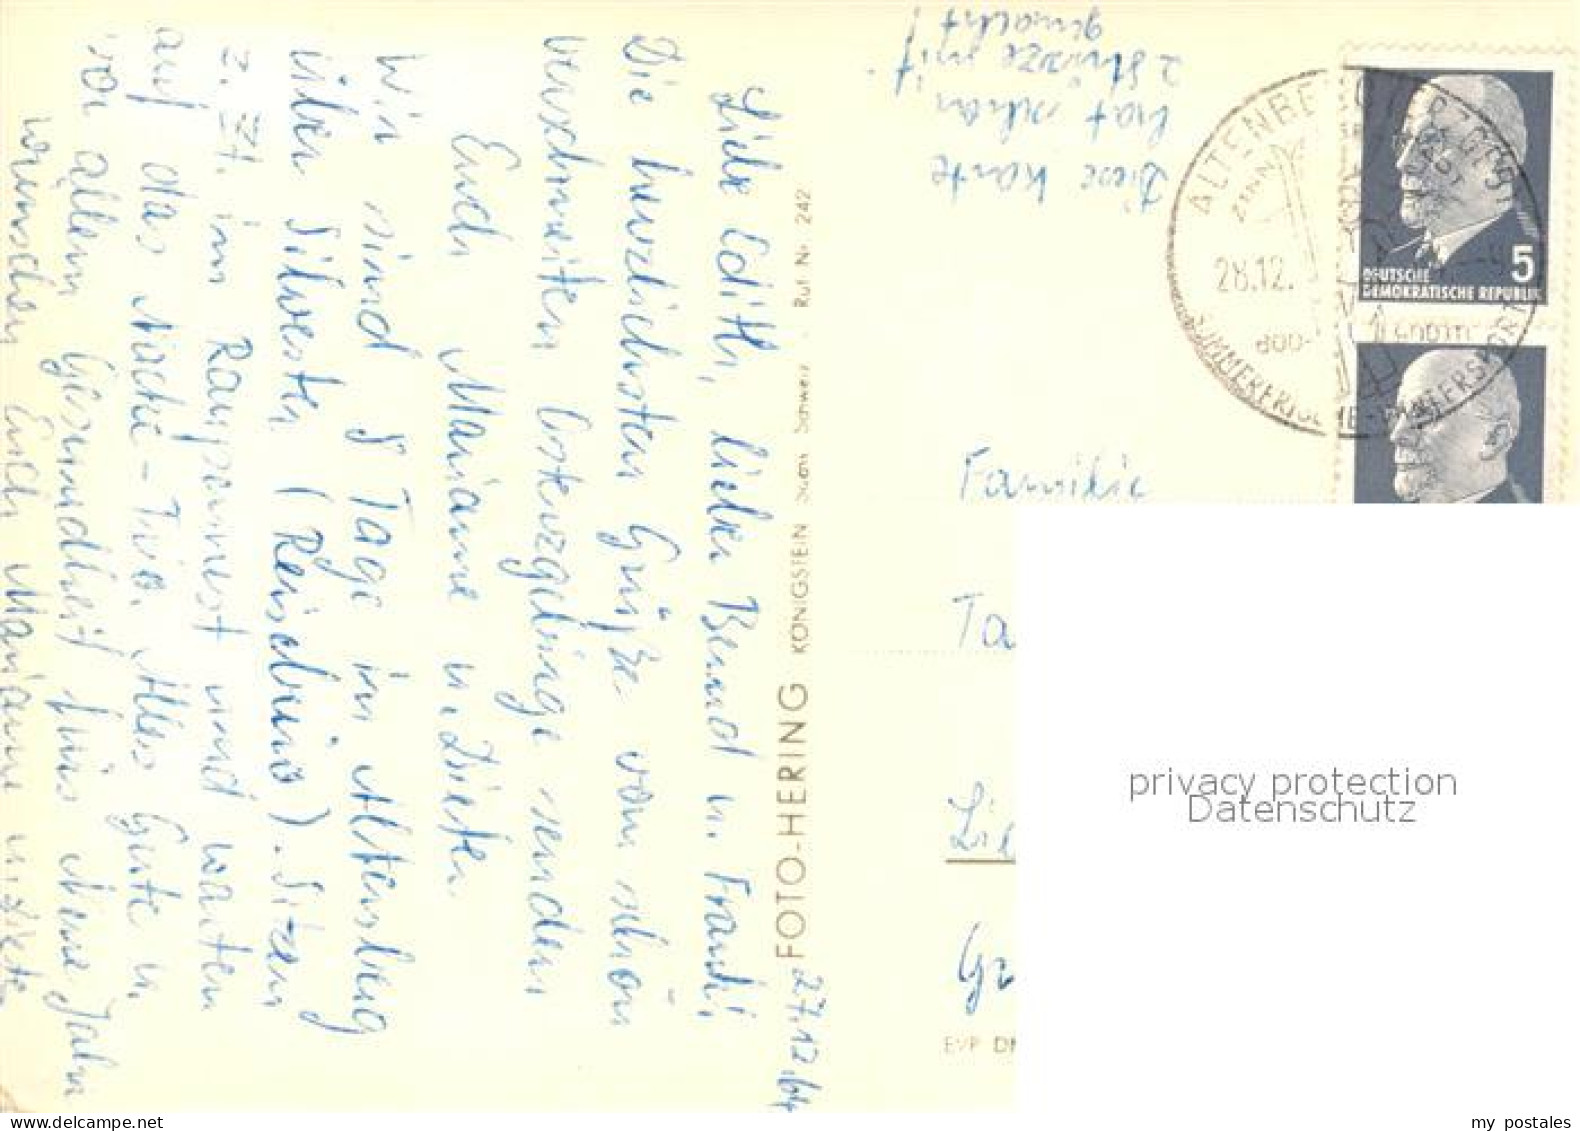 27.12.64
Liebe Edith, lieber Bernd u. Frank,
Die herzlichsten Grüße vom schön
verschneiten Osterzgebirge senden
Euch Marianne u. Dieter.
Wir sind 8 Tage in Altenberg
über Silvester (Reisebüro). Sitzen
z. Zt. im Raupennest und warten
auf das Nacke-Trio. Alles Gute u.
vor allem Gesundheit fürs Neue Jahr
wünschen Euch Marianne u. Dieter
FOTO-HERING KÖNIGSTEIN Sächs. Schweiz . Ruf Nr. 242
Diese Karte
hat schon
2 Stürze mit
gemacht!
ALTENBERG (ERZGEB)
ZINN
28.12.
800-
SOMMERFRISCHE - WINTERSPORT
5
DEUTSCHE
DEMOKRATISCHE REPUBLIK
Familie
Ta
Lie
Gr
EVP DM
privacy protection
Datenschutz
my postales